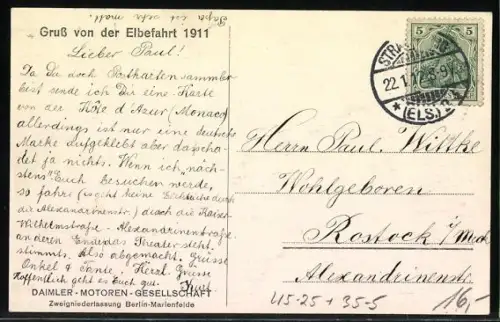 Papa ist sehr
Gruß von der Elbefahrt 1911
Lieber Paul!
Da Du doch Postkarten sammler
bist sende ich Dir eine Karte
von der Kôte d'Azur (Monaco)
allerdings ist nur eine deutsche
Marke aufgeklebt aber das scha-
det ja nichts. Wenn ich „näch-
stens" Euch besuchen werde,
so fahre (es geht keine durch
die Alexandrinenstr.) durch die Kaiser-
Wilhelmstraße - Alexandrinenstraße
anderen Ende das Theater steht.
stimmts. Also abgemacht. Grüsse
Onkel & Tante. Herzl. Grüsse
Hoffentlich geht es Euch gut. Kurt
DAIMLER-MOTOREN-GESELLSCHAFT
Zweigniederlassung Berlin-Marienfelde
5 5
STRAS
22.1.12. 6-9
* (ELS.) 2
Herrn Paul Wittke
Wohlgeboren
Rostock i/Meck
Alexandrinenstr.
45-25 + 35-5
16,-